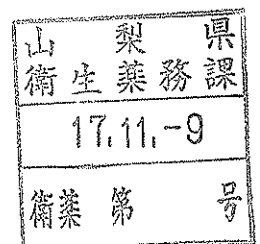 山梨県
衛生薬務課
17.11.-9
衛薬第 号